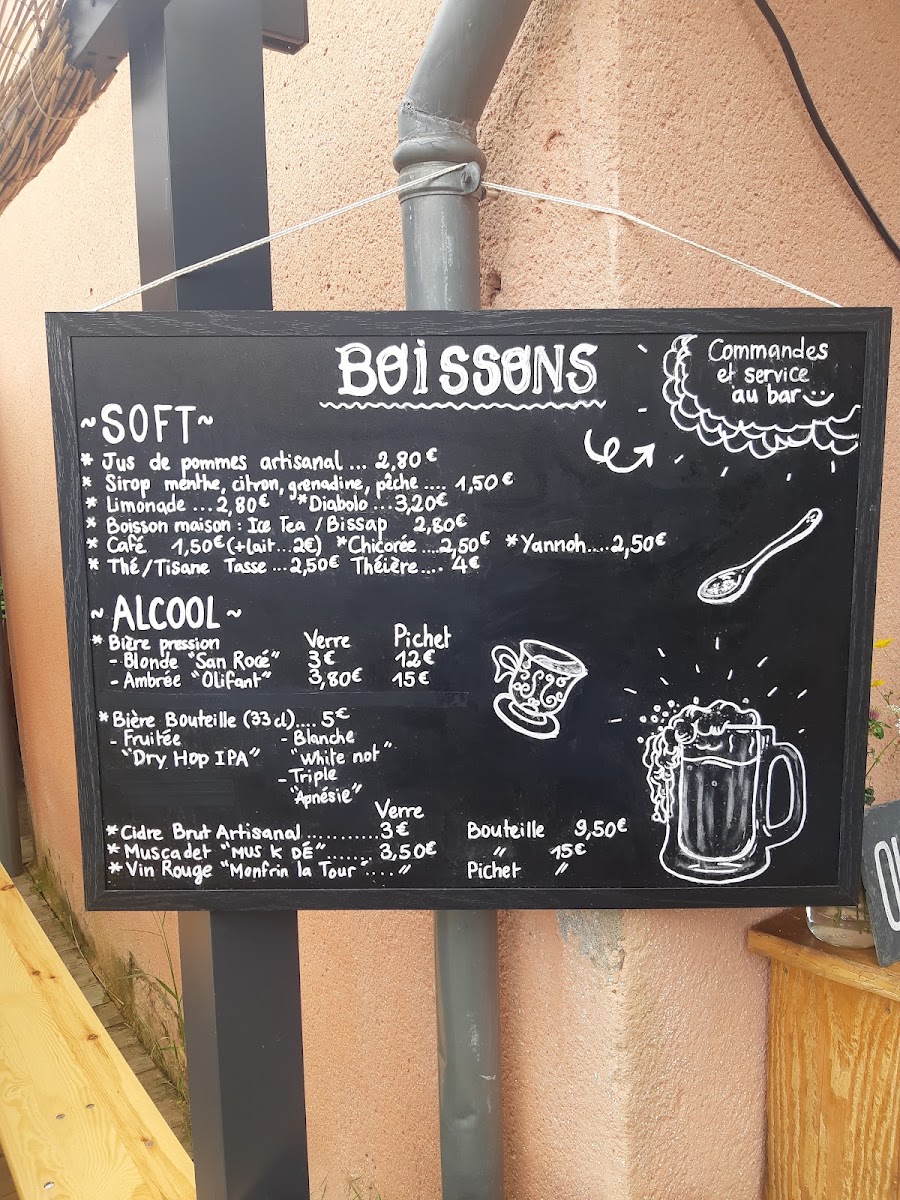 BOISSONS
Commandes
et service
au bar
~SOFT~
* Jus de pommes artisanal ... 2,80€
* Sirop menthe, citron, grenadine, pêche .... 1,50€
* Limonade ... 2,80€ *Diabolo ... 3,20€
* Boisson maison : Ice Tea / Bissap 2,80€
* Café 1,50€ (+lait...2€) *Chicorée ....2,50€ *Yannoh....2,50€
* Thé/Tisane Tasse ... 2,50€ Théière.... 4€
~ALCOOL~
* Bière pression Verre Pichet
- Blonde "San Rocé" 3€ 12€
- Ambrée "Olifant" 3,80€ 15€
*Bière Bouteille (33cl).... 5€
- Fruitée - Blanche
"Dry Hop IPA" "White not"
- Triple
"Apnésie"
Verre
*Cidre Brut Artisanal ........... 3€ Bouteille 9,50€
*Muscadet "MUS K DÉ"...... 3,50€ " 15€
*Vin Rouge "Monfrin la Tour".... " Pichet "